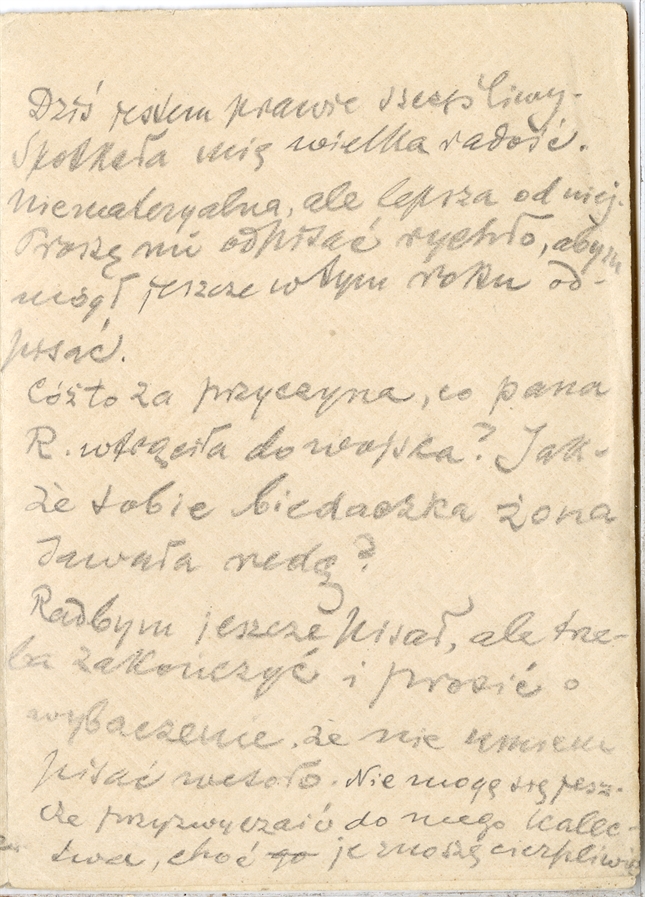 Dziś jestem prawie szczęśliwy.
Spotkała mię wielka radość.
Niemateryalna, ale lepsza od niej.
Proszę mi odpisać rychło, abym
mógł jeszcze w tym roku od-
pisać.
Cóż to za przyczyna, co pana
R. wtrąciła do wojska? Jak-
że sobie biedaczka żona
dawała radę?
Radbym jeszcze pisał, ale trze-
ba zakończyć i prosić o
wybaczenie, że nie umiem
pisać wesoło. Nie mogę się jesz-
cze przyzwyczaić do mego kalec-
twa, choć go je znoszę cierpliwie